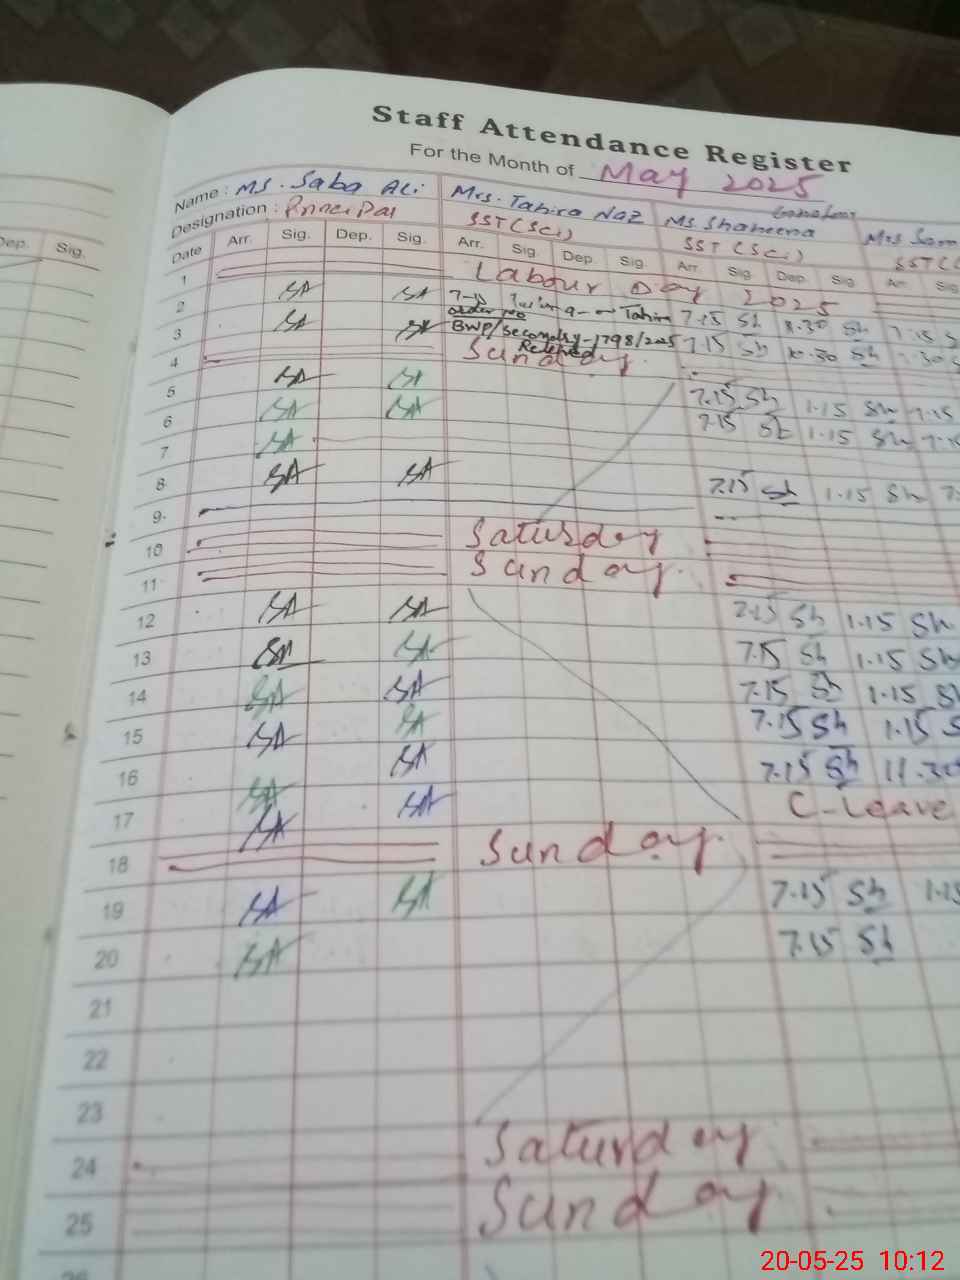 Staff Attendance Register
For the Month of May 2025
Name : Ms. Saba Ali Mrs. Tahira Naz Ms. Shaheena
Designation : Principal SST (Sci) SST (Sci)
Date Arr. Sig. Dep. Sig. Arr. Sig. Dep. Sig. Arr. Sig. Dep. Sig. Arr. Sig.
Dep. Sig.
1 Labour Day 2025
2 SA SA 7-15 Tahira 7.15 Sh 8.30 Sh 7.15
order no
3 SA SA BWP/Secondry-1798/2025 7.15 Sh 10.30 Sh
4 Sunday
5 SA SA 7.15 Sh 1.15 Sh 7.15
6 SA SA 7.15 Sh 1.15 Sh
7 SA
8 SA SA 7.15 Sh 1.15 Sh
9
10 Saturday
11 Sunday
12 SA SA 7.15 Sh 1.15 Sh
13 SA SA 7.15 Sh 1.15 Sh
14 SA SA 7.15 Sh 1.15 Sh
15 SA SA 7.15 Sh 1.15
16 SA SA 7.15 Sh 11.30
17 SA SA C-Leave
18 Sunday
19 SA SA 7.15 Sh 1.15
20 SA 7.15 Sh
21
22
23
24 Saturday
25 Sunday
20-05-25 10:12